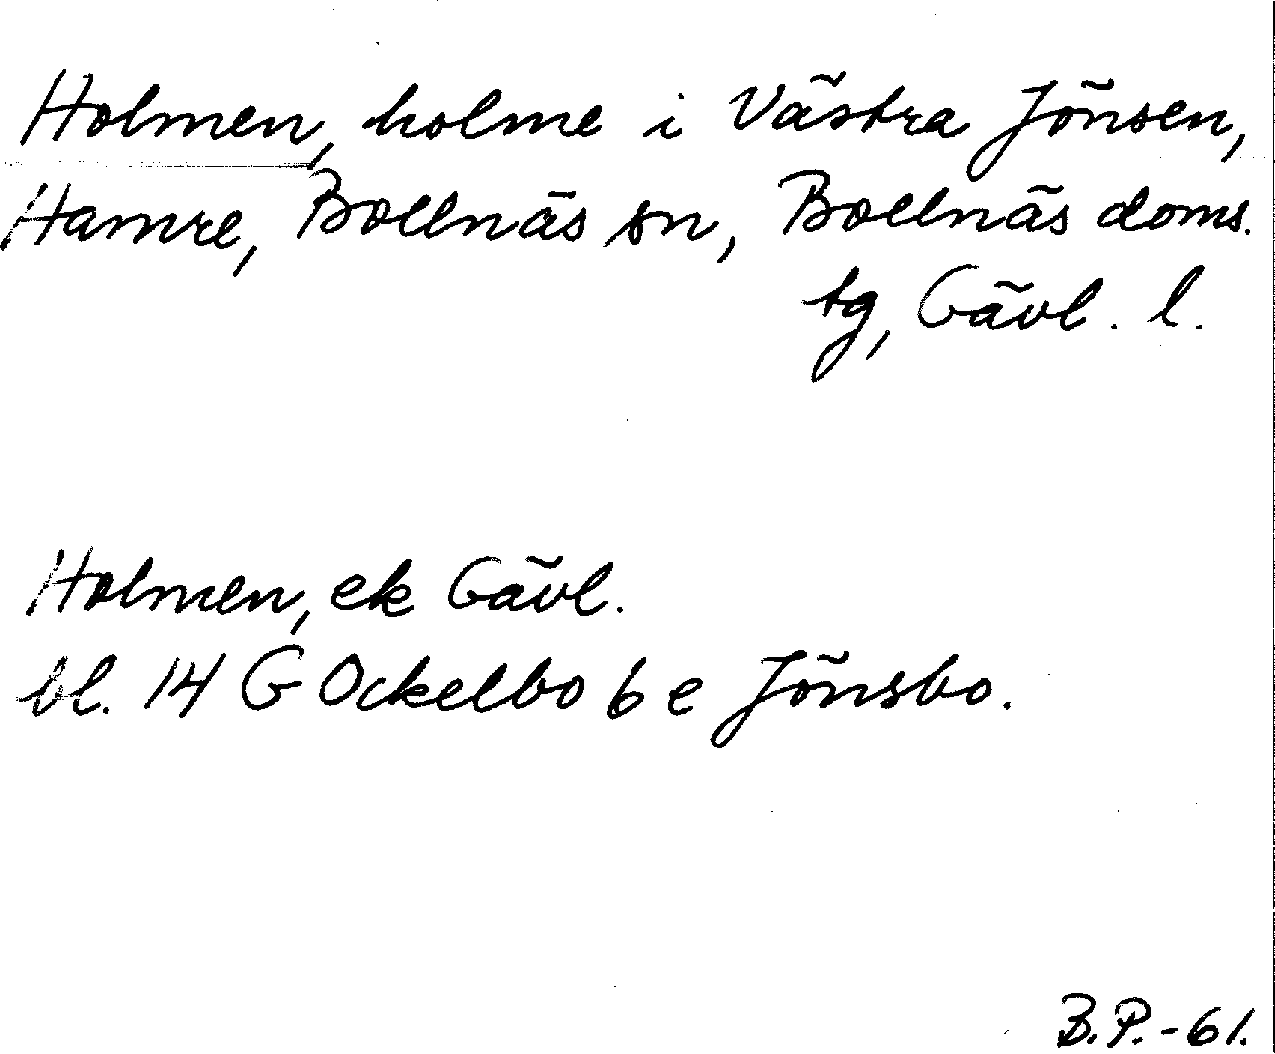 Holmen, holme i Västra Jönsen,
Hamre, Bollnäs sn, Bollnäs doms.
tg, Gävl. l.
Holmen, ek Gävl.
bl. 14 G Ockelbo 6 e Jönsbo.
B.P.-61.